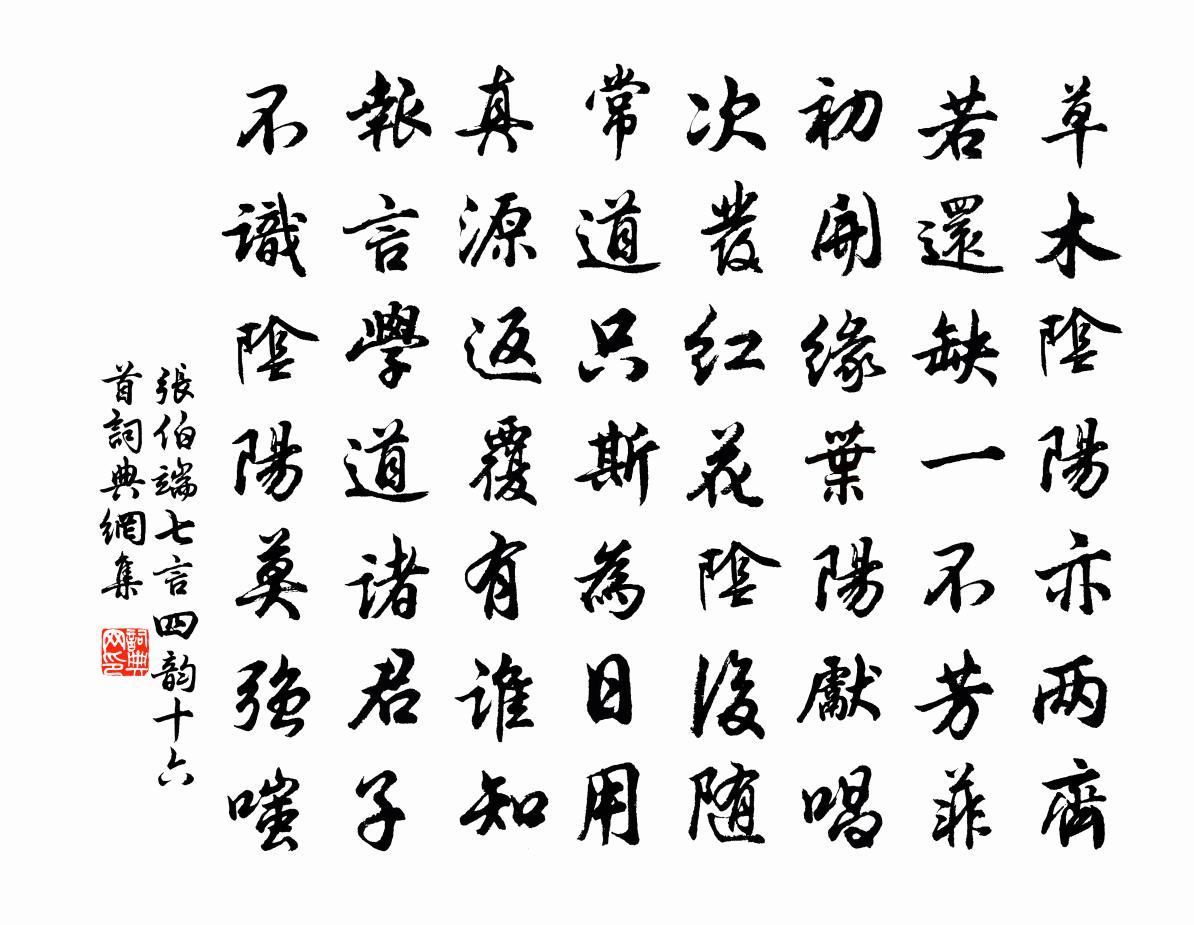 草木陰陽亦两齊
若還缺一不芳菲
初開緣葉陽獻唱
次發红花陰後随
常道只斯為日用
真源返覆有誰知
報言學道諸君子
不識陰陽莫强嗤
張伯端七言四韵十六
首詞典網集
詞典
网印